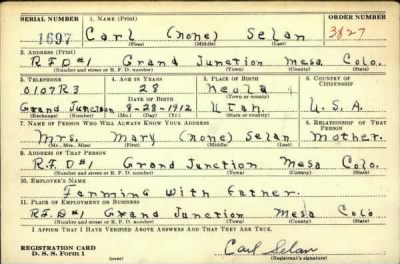 SERIAL NUMBER 1. NAME (Print) ORDER NUMBER
1697 Carl (none) Selan 3827
(First) (Middle) (Last)
2. ADDRESS (Print)
R.F.D #1 Grand Junction Mesa Colo.
(Number and street or R. F. D. number) (Town) (County) (State)
3. TELEPHONE 4. AGE IN YEARS 5. PLACE OF BIRTH 6. COUNTRY OF CITIZENSHIP
0107R3 28 Neola
DATE OF BIRTH (Town or county)
Grand Junction 8-28-1912 Utah. U.S.A.
(Exchange) (Number) (Mo.) (Day) (Yr.) (State or country)
7. NAME OF PERSON WHO WILL ALWAYS KNOW YOUR ADDRESS 8. RELATIONSHIP OF THAT PERSON
Mrs. Mary (none) Selan Mother.
(Mr., Mrs., Miss) (First) (Middle) (Last)
9. ADDRESS OF THAT PERSON
R.F.D #1 Grand Junction Mesa Colo.
(Number and street or R. F. D. number) (Town) (County) (State)
10. EMPLOYER'S NAME
Farming with father.
11. PLACE OF EMPLOYMENT OR BUSINESS
R.F.D #1 Grand Junction Mesa Colo
(Number and street or R. F. D. number) (Town) (County) (State)
I AFFIRM THAT I HAVE VERIFIED ABOVE ANSWERS AND THAT THEY ARE TRUE.
REGISTRATION CARD
D. S. S. Form 1 (over) Carl Selan
(Registrant's signature)